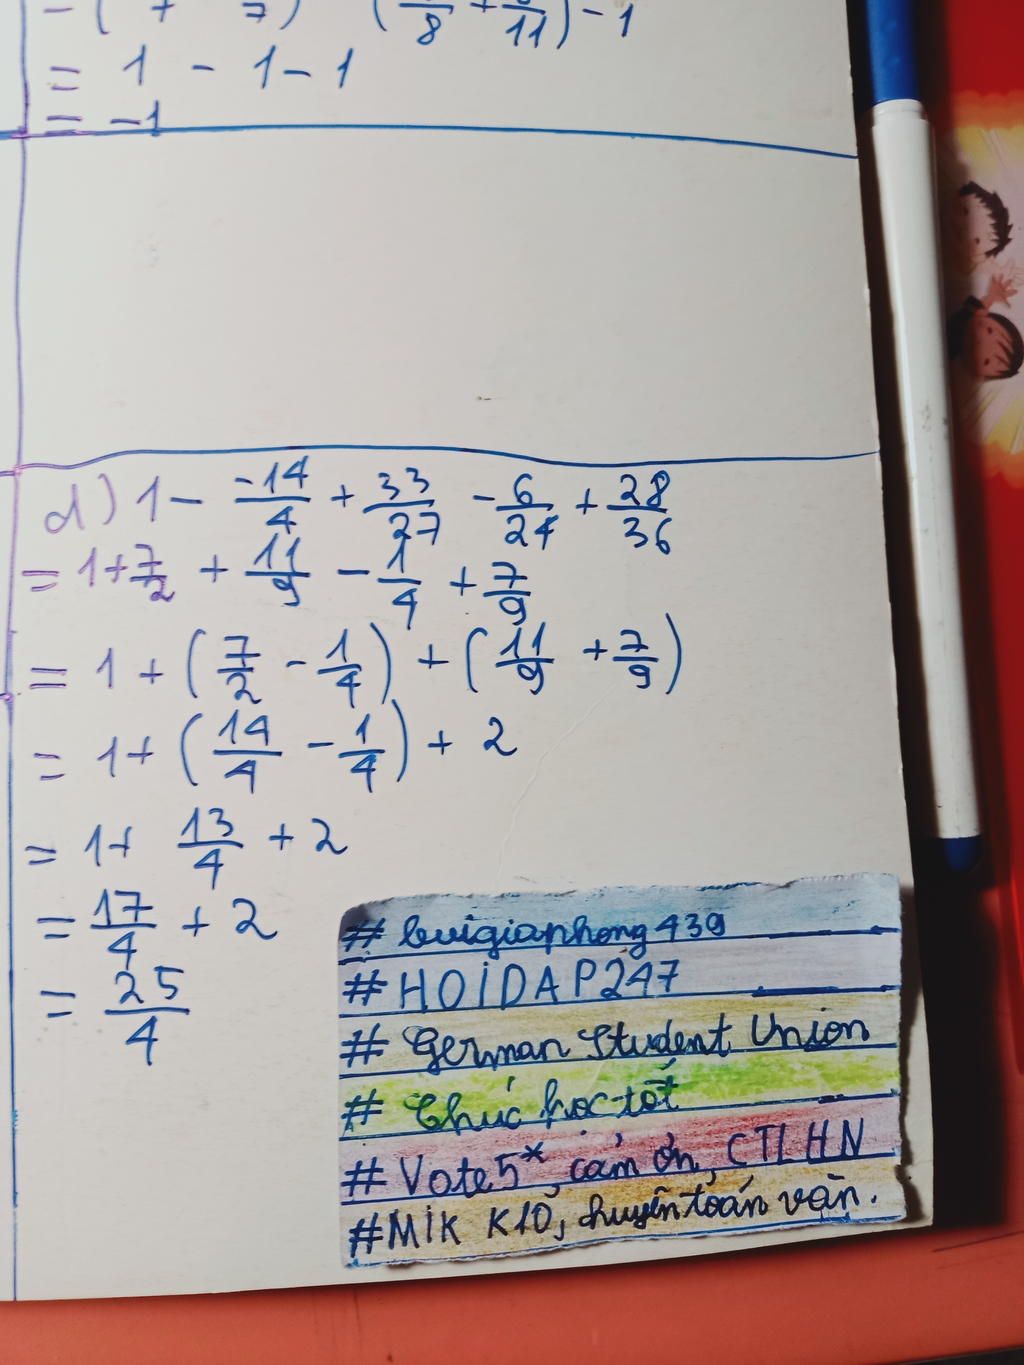 8 11) - 1
= 1 - 1 - 1
= -1
d) 1 - -14/4 + 33/27 - 6/24 + 28/36
= 1 + 7/2 + 11/9 - 1/4 + 7/9
= 1 + (7/2 - 1/4) + (11/9 + 7/9)
= 1 + (14/4 - 1/4) + 2
= 1 + 13/4 + 2
= 17/4 + 2
= 25/4
# buigiaphong439
# HOIDAP247
# German Student Union
# Chúc học tốt
# Vote5*, cảm ơn, CTLHN
#MIK K10, chuyên toán văn.